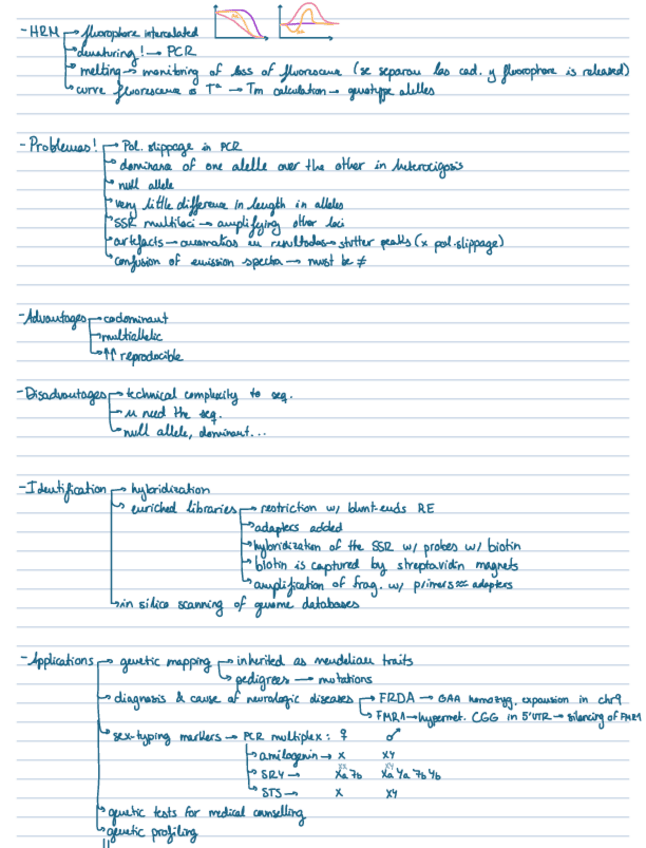 - HRM → fluorophore intercalated
→ denaturing! → PCR
→ melting → monitoring of loss of fluorescence (se separan las cad. y fluorophore is released)
→ curve fluorescence a Tª → Tm calculation → genotype alleles
- Problemas! → Pol. slippage in PCR
→ dominance of one alelle over the other in heterocigosis
→ null allele
→ very little difference in length in alleles
→ SSR multiloci → amplifying other loci
→ artefacts → en resultados → stutter peaks (x pol. slippage)
→ confusion of emission spectra → must be ≠
- Advantages → codominant
→ multiallelic
→ ↑↑ reproducible
- Disadvantages → technical complexity to seq.
→ u need the seq.
→ null allele, dominant...
- Identification → hybridization
→ enriched libraries → restriction w/ blunt-ends RE
→ adapters added
→ hybridization of the SSR w/ probes w/ biotin
→ biotin is captured by streptavidin magnets
→ amplification of frag. w/ primers ≈ adapters
→ in silico scanning of genome databases
- Applications → genetic mapping → inherited as mendelian traits
→ pedigrees → mutations
→ diagnosis & cause of neurologic diseases → FRDA → GAA homozyg. expansion in chr9
→ FMR1 → hypermet. CGG in 5'UTR → silencing of FMR1
→ sex-typing markers → PCR multiplex: ♀ ♂
→ amilogenin → X XY
→ SRY → Xa 7b Xa Ya 7b Yb
→ STS → X XY
→ genetic tests for medical counselling
→ genetic profiling